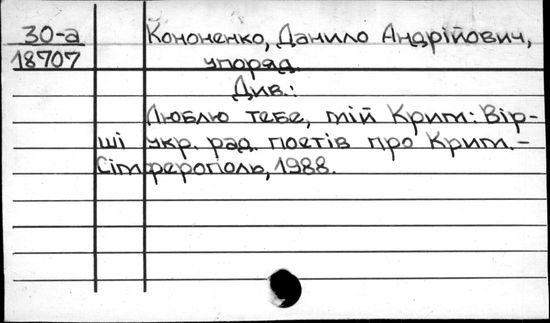 30-а Кононенко, Данило Андрійович,
18707 упоряд.
Див.:
Люблю тебе, мій Крим: Вір-
ші укр. рад. поетів про Крим. –
Сімферополь, 1988.